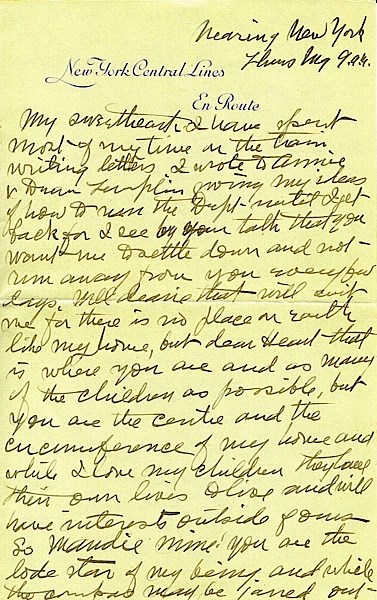 Nearing New York
Thurs Mg 9 a.m.
New York Central Lines
En Route
My sweetheart I have spent
most of my time on the train
writing letters, I wrote to Annie
& Dean giving my ideas
of how to run the Dept until I get
back for I see by your talk that you
want me to settle down and not
run away from you every few
days, Well dearie that will suit
me for there is no place on earth
like my home, but dear Heart that
is where you are and as many
of the children as possible, but
you are the centre and the
circumference of my home and
while I love my children they have
their own lives to live and will
have interests outside of ours
So Maudie mine you are the
lode star of my being and while
the compass may be out-